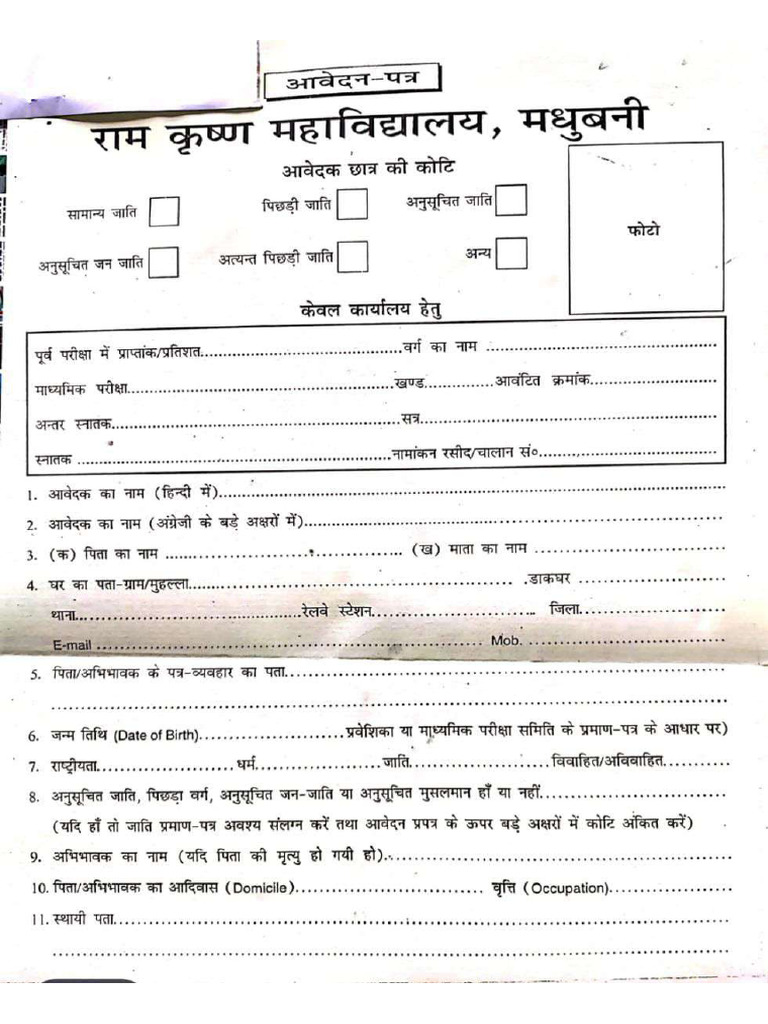 आवेदन-पत्र
राम कृष्ण महाविद्यालय, मधुबनी
आवेदक छात्र की कोटि
सामान्य जाति पिछड़ी जाति अनुसूचित जाति
फोटो
अनुसूचित जन जाति अत्यन्त पिछड़ी जाति अन्य
केवल कार्यालय हेतु
पूर्व परीक्षा में प्राप्तांक/प्रतिशत..........वर्ग का नाम ..........
माध्यमिक परीक्षा..........खण्ड..........आवंटित क्रमांक..........
अन्तर स्नातक..........सत्र..........
स्नातक ..........नामांकन रसीद/चालान सं०..........
1. आवेदक का नाम (हिन्दी में)..........
2. आवेदक का नाम (अंग्रेजी के बड़े अक्षरों में)..........
3. (क) पिता का नाम .......... (ख) माता का नाम ..........
4. घर का पता-ग्राम/मुहल्ला.......... डाकघर ..........
थाना..........रेलवे स्टेशन.......... जिला..........
E-mail .......... Mob. ..........
5. पिता/अभिभावक के पत्र-व्यवहार का पता..........
6. जन्म तिथि (Date of Birth)..........प्रवेशिका या माध्यमिक परीक्षा समिति के प्रमाण-पत्र के आधार पर)
7. राष्ट्रीयता..........धर्म..........जाति..........विवाहित/अविवाहित..........
8. अनुसूचित जाति, पिछड़ा वर्ग, अनुसूचित जन-जाति या अनुसूचित मुसलमान हाँ या नहीं..........
(यदि हाँ तो जाति प्रमाण-पत्र अवश्य संलग्न करें तथा आवेदन प्रपत्र के ऊपर बड़े अक्षरों में कोटि अंकित करें)
9. अभिभावक का नाम (यदि पिता की मृत्यु हो गयी हो)..........
10. पिता/अभिभावक का आदिवास (Domicile).......... वृत्ति (Occupation)..........
11. स्थायी पता..........